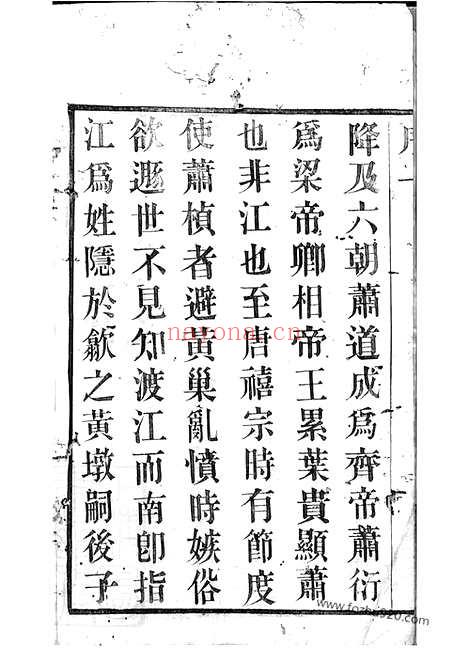 降及六朝蕭道成爲齊帝蕭衍
爲梁帝卿相帝王累葉貴顯蕭
也非江也至唐禧宗時有節度
使蕭楨者避黃巢亂憤時嫉俗
欲遯世不見知渡江而南卽指
江爲姓隱於歙之黃墩嗣後子
nayona.cn
www.fozhu920.com